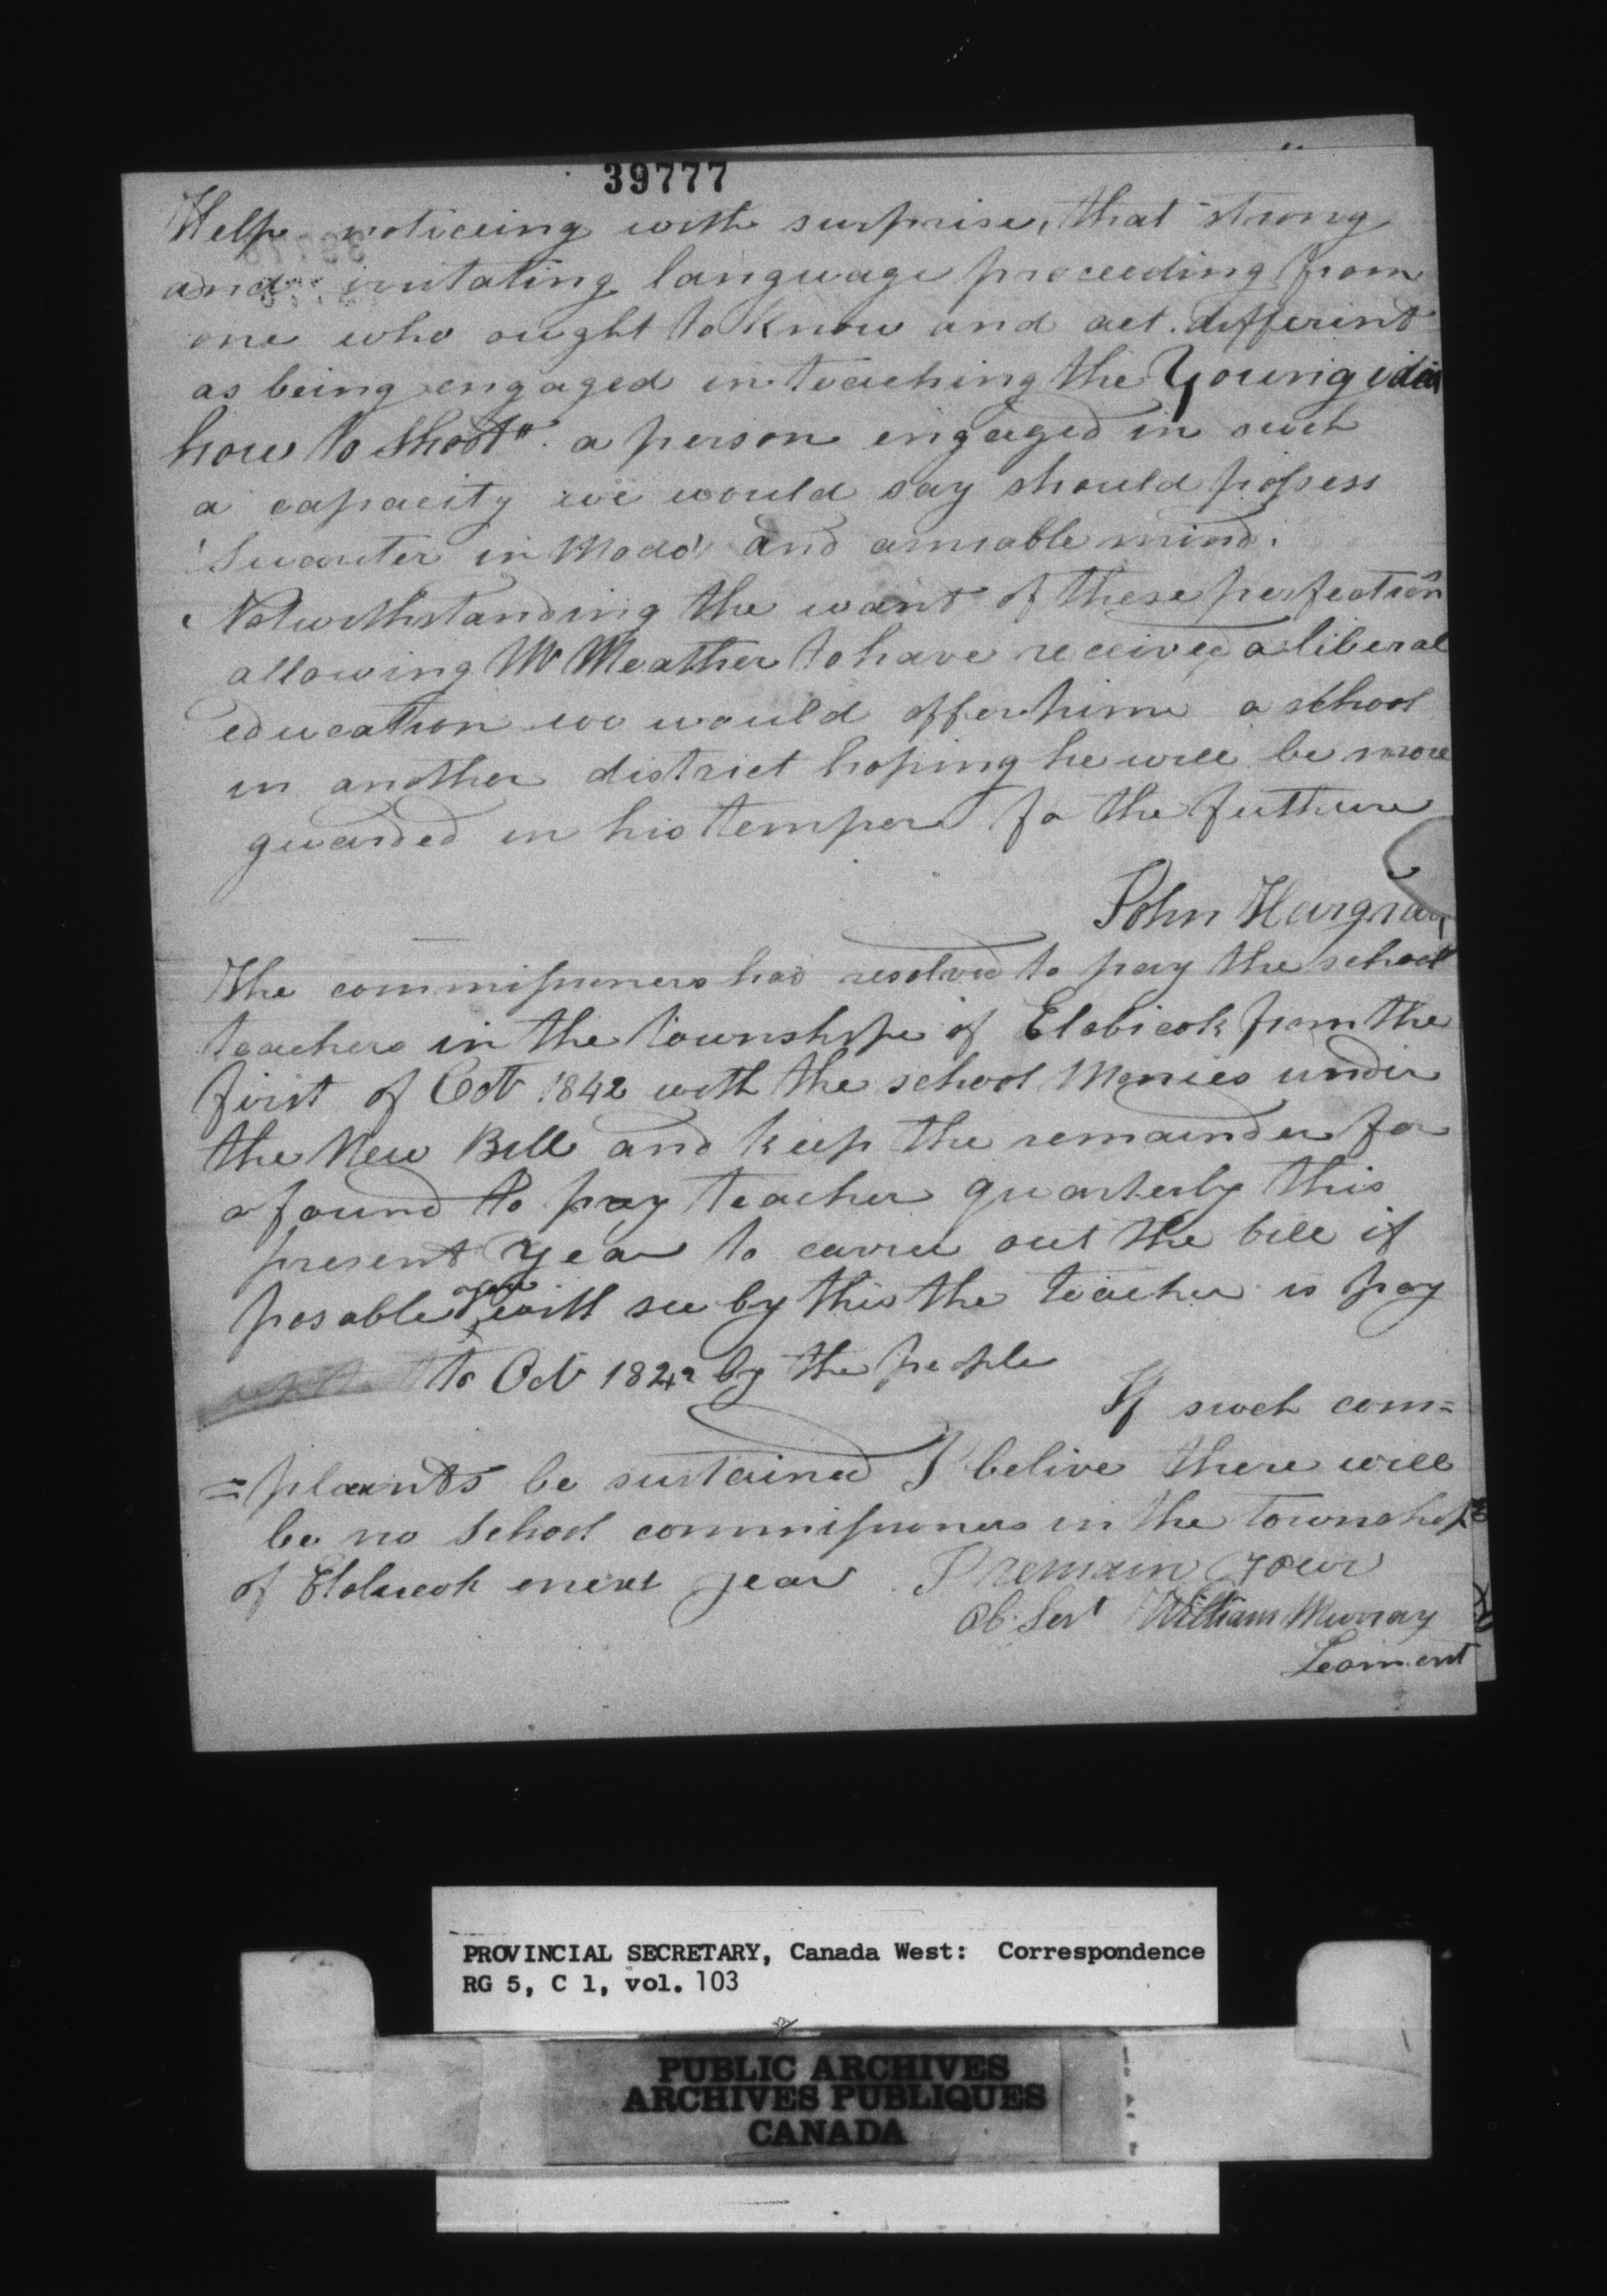 39777
Help noticeing with surprise, that strong
and irritating language proceeding from
one who ought to know and act different
as being engaged in teaching the Young idea
how to Shoot" a person engaged in such
a capacity we would say should possess
'Suaviter in Modo' and amiable mind.
Notwithstanding the want of these perfections
allowing Mr Meather to have received a liberal
education we would offer him a school
in another district hoping he will be more
guarded in his temper fo the futture
John
The commissioners had resolved to pay the school
teachers in the townshipe of Etobicok from the
first of Oct 1842 with the school Monies under
the New Bill and keep the remainder for
a found to pay teacher quarterly this
present year to carree out the bill if
posable you will see by this the teacher is pay
to Oct 1842 by the people
If such com=
=plaints be sustained I belive there will
be no school commissioners in the township
of Etobicok next year I remain your
Ob. Sert William Murray
PROVINCIAL SECRETARY, Canada West: Correspondence
RG 5, C 1, vol. 103
PUBLIC ARCHIVES
ARCHIVES PUBLIQUES
CANADA